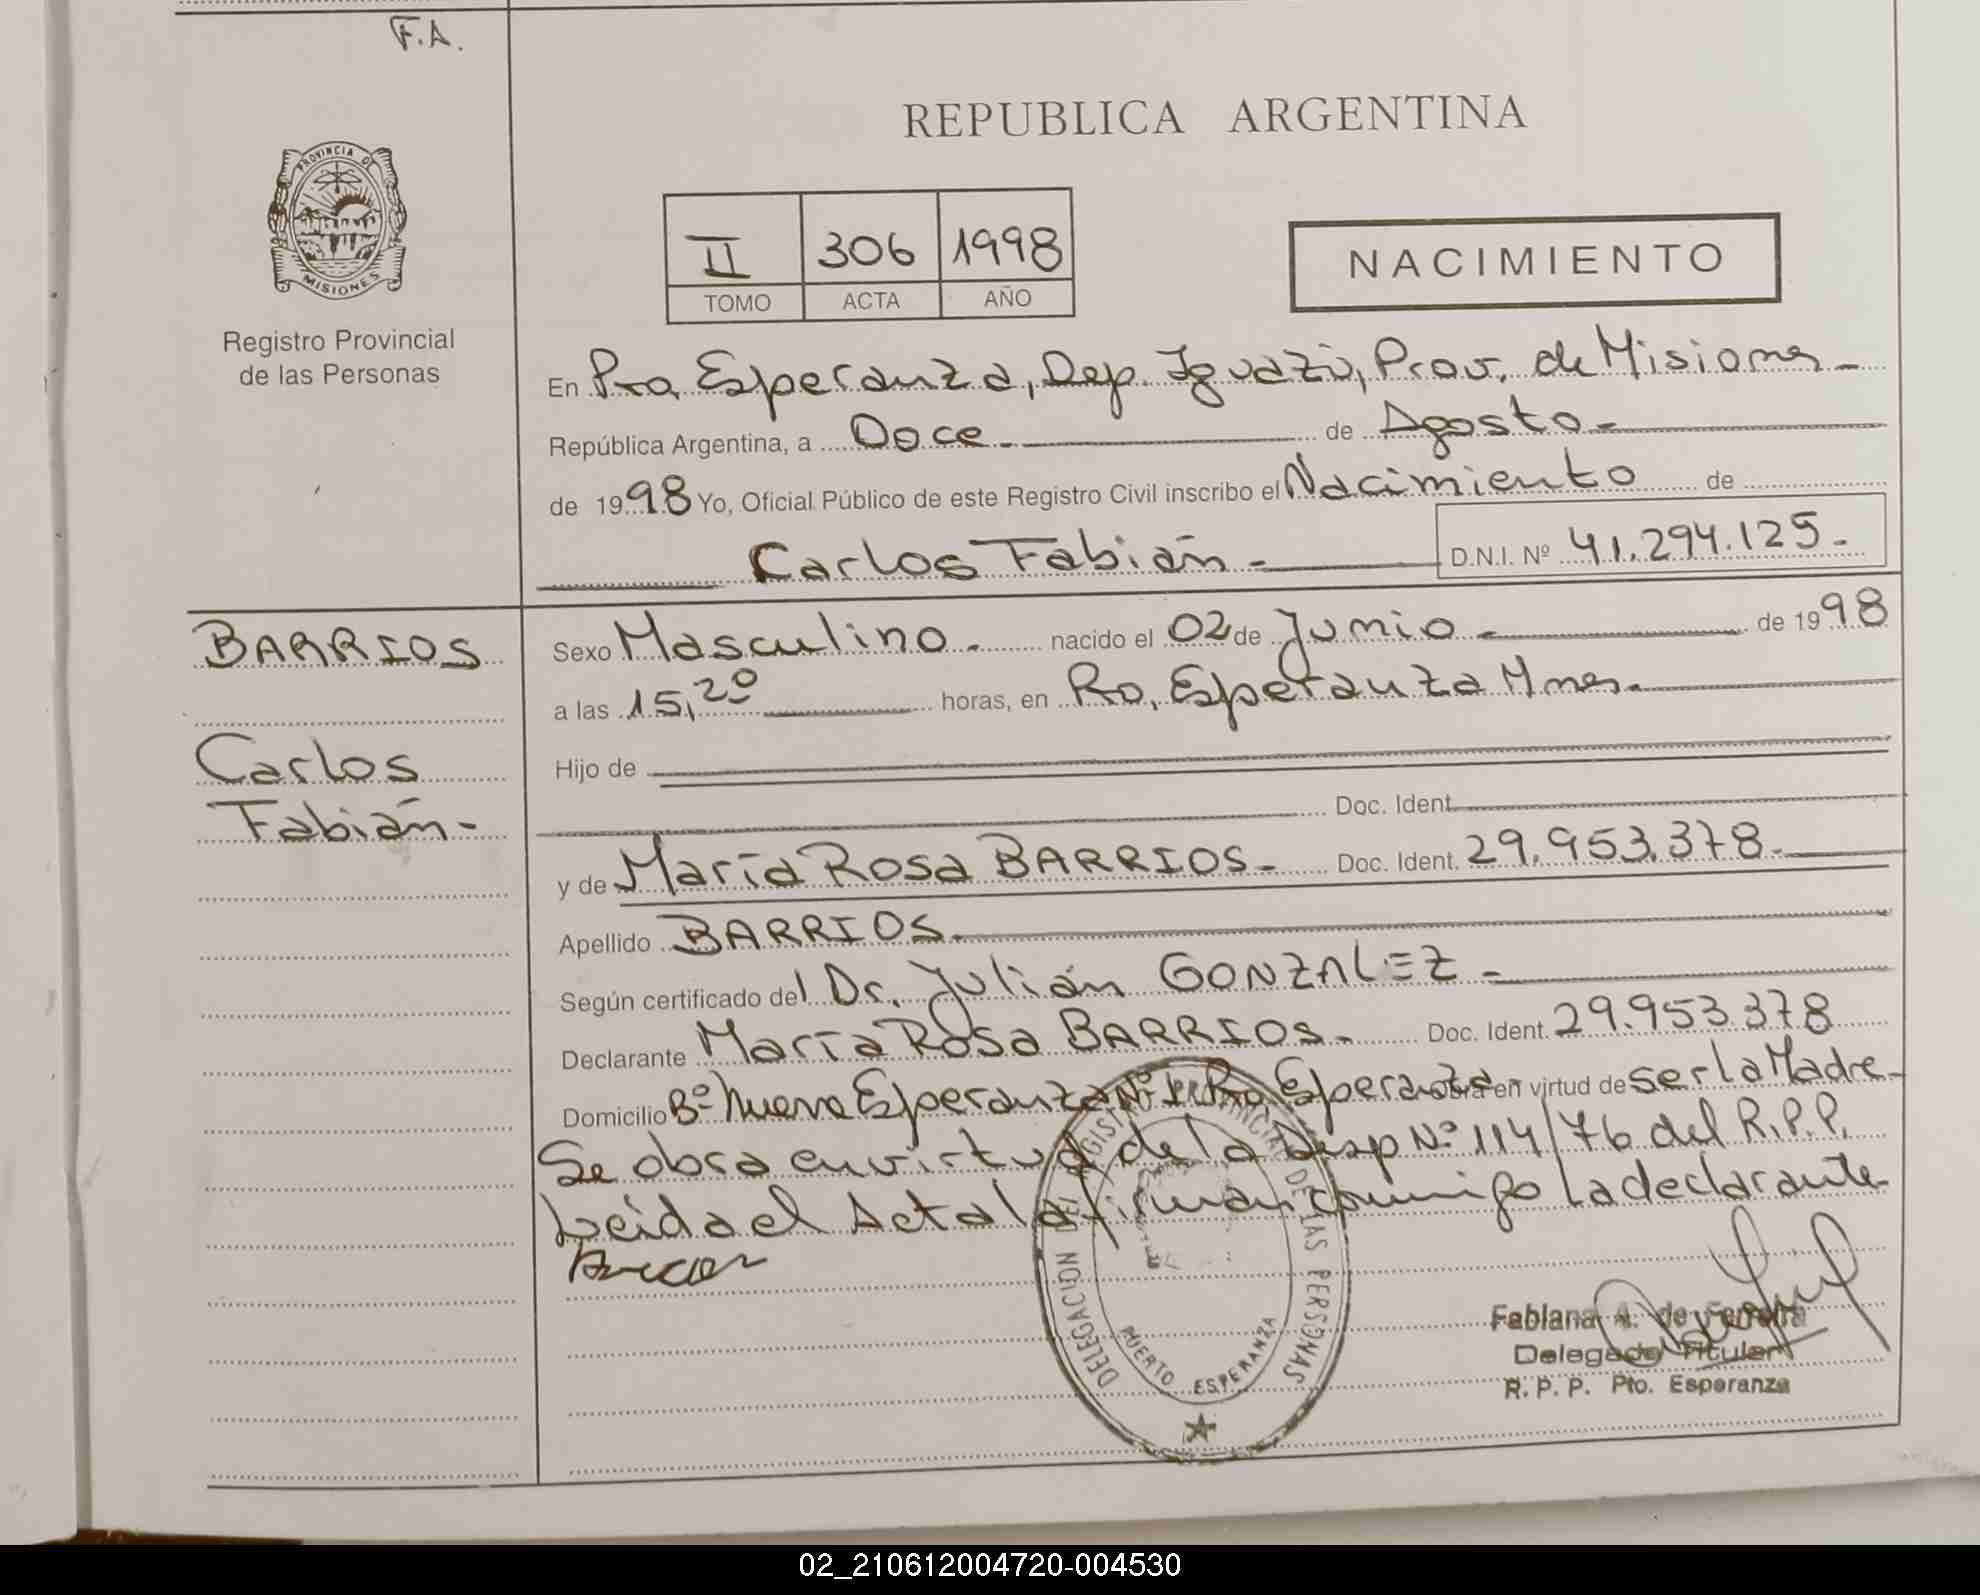 F.A.
REPUBLICA ARGENTINA
PROVINCIA DE
MISIONES
Registro Provincial
de las Personas
II 306 1998
TOMO ACTA AÑO
NACIMIENTO
En Pto. Esperanza, Dep. Iguazú, Prov. de Misiones -
República Argentina, a Doce - de Agosto -
de 1998 Yo, Oficial Público de este Registro Civil inscribo el Nacimiento de
Carlos Fabián - D.N.I. Nº 41.294.125.-
BARRIOS
Carlos
Fabián -
Sexo Masculino. nacido el 02 de Junio - de 1998
a las 15,20 horas, en Pto. Esperanza Mnes.
Hijo de
Doc. Ident.
y de María Rosa BARRIOS - Doc. Ident. 29.953.378.-
Apellido BARRIOS.
Según certificado del Dr. Julián GONZALEZ -
Declarante María Rosa BARRIOS. Doc. Ident. 29.953.378
Domicilio Bº Nueva Esperanza Nº 1 Pto. Esperanza obra en virtud de ser la Madre -
Se obra en virtud de la Disp Nº 114/76 del R.P.P.
Leída el Acta la firman conmigo la declarante
DELEGACION DEL REGISTRO PROVINCIAL DE LAS PERSONAS
PUERTO ESPERANZA
Fabiana A. de Ferreira
Delegada Titular
R. P. P. Pto. Esperanza
02_210612004720-004530